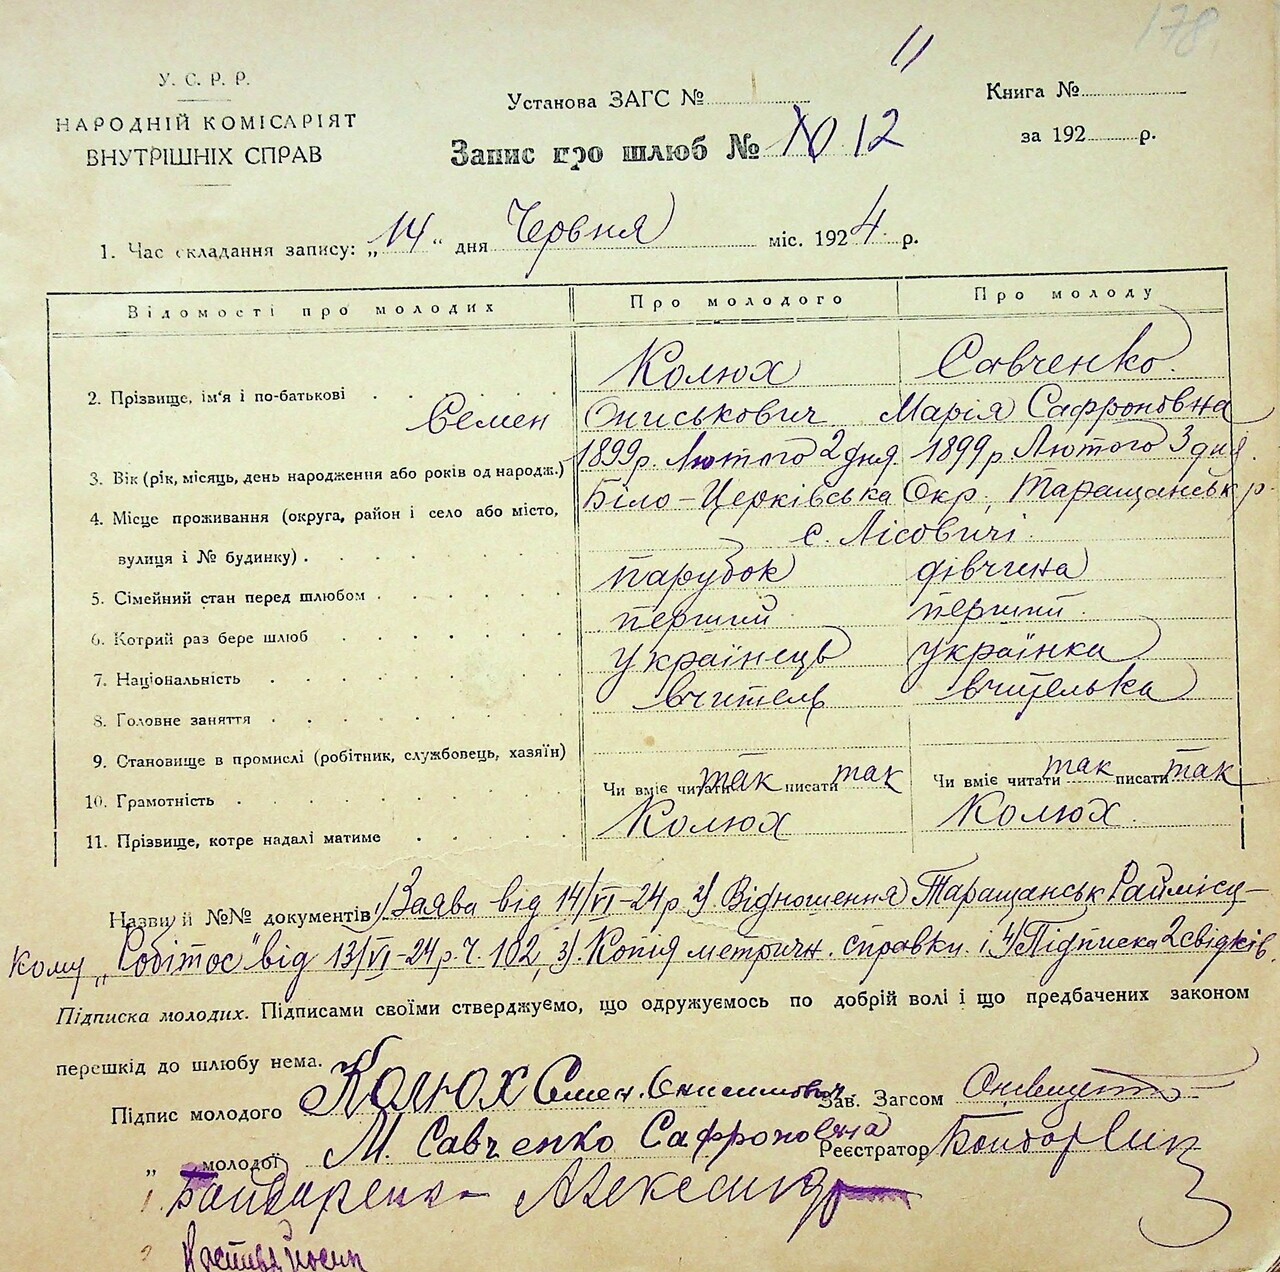 178
11
У. С. Р. Р.
НАРОДНІЙ КОМІСАРІЯТ
ВНУТРІШНІХ СПРАВ
Установа ЗАГС №
Книга №
за 192 р.
Запис про шлюб № 10 12
1. Час складання запису: „14“ дня Червня міс. 1924 р.
Відомості про молодих
Про молодого
Про молоду
2. Прізвище, ім'я і по-батькові
Колюх
Савченко
Семен Ониськович
Марія Сафроновна
3. Вік (рік, місяць, день народження або років од народж.)
1899 р. Лютого 2 дня
1899 р Лютого 3 дня.
4. Місце проживання (округа, район і село або місто,
вулиця і № будинку)
Біло-Церківська Окр, Таращанськ р.
с. Лісовичі.
5. Сімейний стан перед шлюбом
парубок
дівчина
6. Котрий раз бере шлюб
перший
перший.
7. Національність
українець
українка
8. Головне заняття
вчитель
вчителька
9. Становище в промислі (робітник, службовець, хазяїн)
10. Грамотність
Чи вміє читати так писати так
Чи вміє читати так писати так
11. Прізвище, котре надалі матиме
Колюх
Колюх.
Назви й №№ документів 1) Заява від 14/VI-24 р 2) Відношення Таращанськ Раймісц-
кому „Робітос“ від 13/VI-24 р. Ч. 102, 3). Копія метричн. справки. і 4) Підписка 2 свідків.
Підписка молодих. Підписами своїми стверджуємо, що одружуємось по добрій волі і що предбачених законом
перешкід до шлюбу нема.
Підпис молодого Колюх Семен. Онисимович
Зав. Загсом
„ молодої М. Савченко Сафроновна
Реєстратор
1 Бондаренко Александр
2